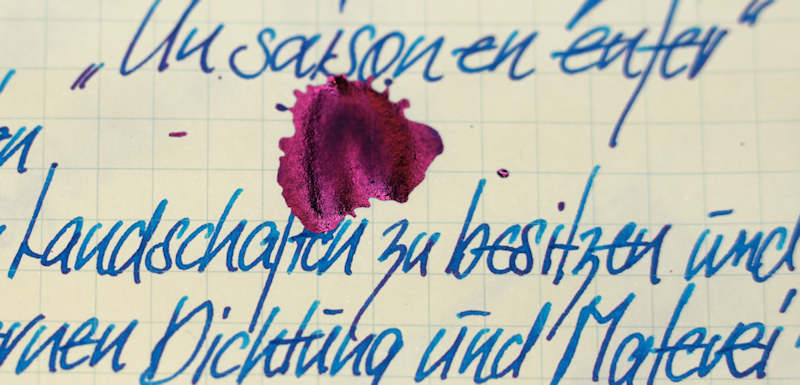 „Un saison en enfer“
en
Landschaften zu besitzen und
rnen Dichtung und Malerei